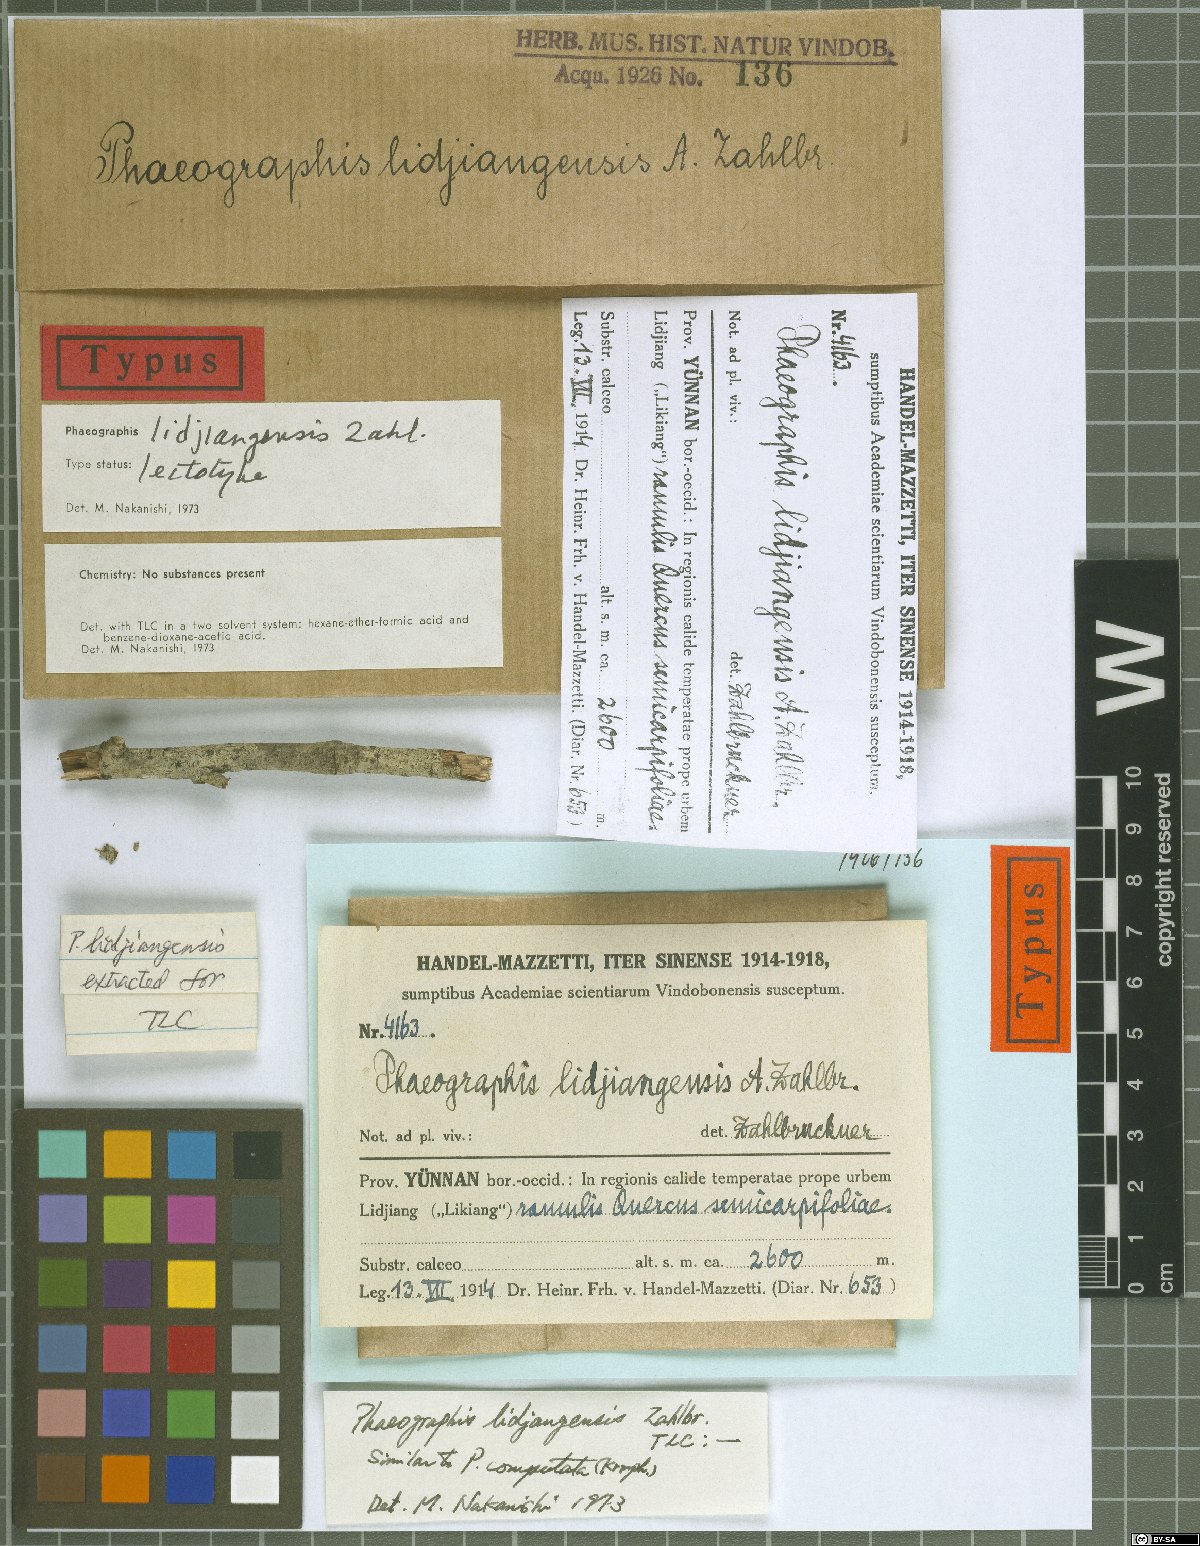 HERB. MUS. HIST. NATUR VINDOB.
Acqu. 1926 No. 136
Phaeographis lidjiangensis A. Zahlbr
Typus
Phaeographis lidjiangensis Zahl.
Type status: lectotype
Det. M. Nakanishi, 1973
Chemistry: No substances present
Det. with TLC in a two solvent system: hexane-ether-formic acid and
benzene-dioxane-acetic acid.
Det. M. Nakanishi, 1973
HANDEL-MAZZETTI, ITER SINENSE 1914-1918,
sumptibus Academiae scientiarum Vindobonensis susceptum.
Nr. 4163.
Phaeographis lidjiangensis A. Zahlbr.
Not. ad pl. viv.: det. Zahlbruckner
Prov. YÜNNAN bor.-occid.: In regionis calide temperatae prope urbem
Lidjiang („Likiang“) ramulis Quercus semicarpifoliae.
Substr. calceo alt. s. m. ca. 2600 m.
Leg. 13. VII. 1914. Dr. Heinr. Frh. v. Handel-Mazzetti. (Diar. Nr. 653)
P. lidjiangensis
extracted for
TLC
136
Typus
HANDEL-MAZZETTI, ITER SINENSE 1914-1918,
sumptibus Academiae scientiarum Vindobonensis susceptum.
Nr. 4163.
Phaeographis lidjiangensis A. Zahlbr.
Not. ad pl. viv.: det. Zahlbruckner
Prov. YÜNNAN bor.-occid.: In regionis calide temperatae prope urbem
Lidjiang („Likiang“) ramulis Quercus semicarpifoliae.
Substr. calceo alt. s. m. ca. 2600 m.
Leg. 13. VII. 1914 Dr. Heinr. Frh. v. Handel-Mazzetti. (Diar. Nr. 653)
Phaeographis lidjangensis Zahlbr.
TLC: —
Similar to P. computata (Kremph.)
Det. M. Nakanishi 1973
W
10 9 8 7 6 5 4 3 2 1 0
cm
copyright reserved
BY-SA